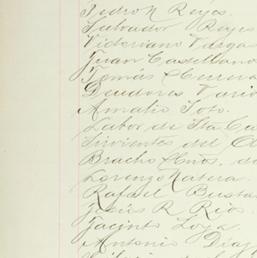 Pedro N Reyes.
Salvador Reyes
Victoriano Vargas
Juan Castellano
Tomás
Amalio Soto.
Labor de Sta Ca
Sirvientes del
Bracho é hijos, de
Lorenzo Natera.
Rafael Busta
Jesús R. Rios.
Jacinto Loya.
Antonio Diaz